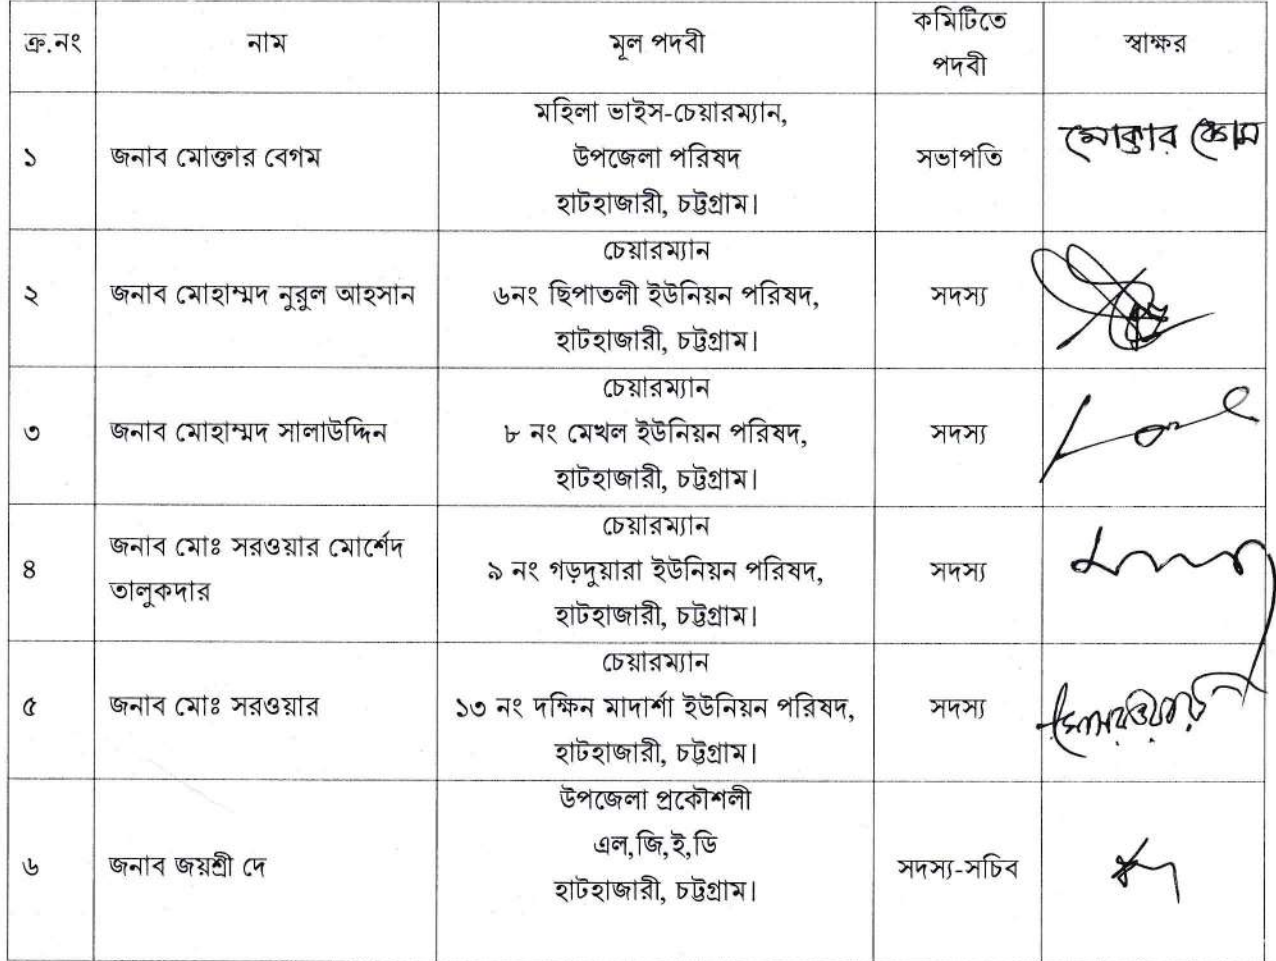 ক্র.নং নাম মূল পদবী কমিটিতে পদবী স্বাক্ষর
১ জনাব মোক্তার বেগম মহিলা ভাইস-চেয়ারম্যান,
উপজেলা পরিষদ
হাটহাজারী, চট্টগ্রাম। সভাপতি মোক্তার বেগম
২ জনাব মোহাম্মদ নুরুল আহসান চেয়ারম্যান
৬নং ছিপাতলী ইউনিয়ন পরিষদ,
হাটহাজারী, চট্টগ্রাম। সদস্য
৩ জনাব মোহাম্মদ সালাউদ্দিন চেয়ারম্যান
৮ নং মেখল ইউনিয়ন পরিষদ,
হাটহাজারী, চট্টগ্রাম। সদস্য
৪ জনাব মোঃ সরওয়ার মোর্শেদ
তালুকদার চেয়ারম্যান
৯ নং গড়দুয়ারা ইউনিয়ন পরিষদ,
হাটহাজারী, চট্টগ্রাম। সদস্য
৫ জনাব মোঃ সরওয়ার চেয়ারম্যান
১৩ নং দক্ষিন মাদার্শা ইউনিয়ন পরিষদ,
হাটহাজারী, চট্টগ্রাম। সদস্য
৬ জনাব জয়শ্রী দে উপজেলা প্রকৌশলী
এল,জি,ই,ডি
হাটহাজারী, চট্টগ্রাম। সদস্য-সচিব